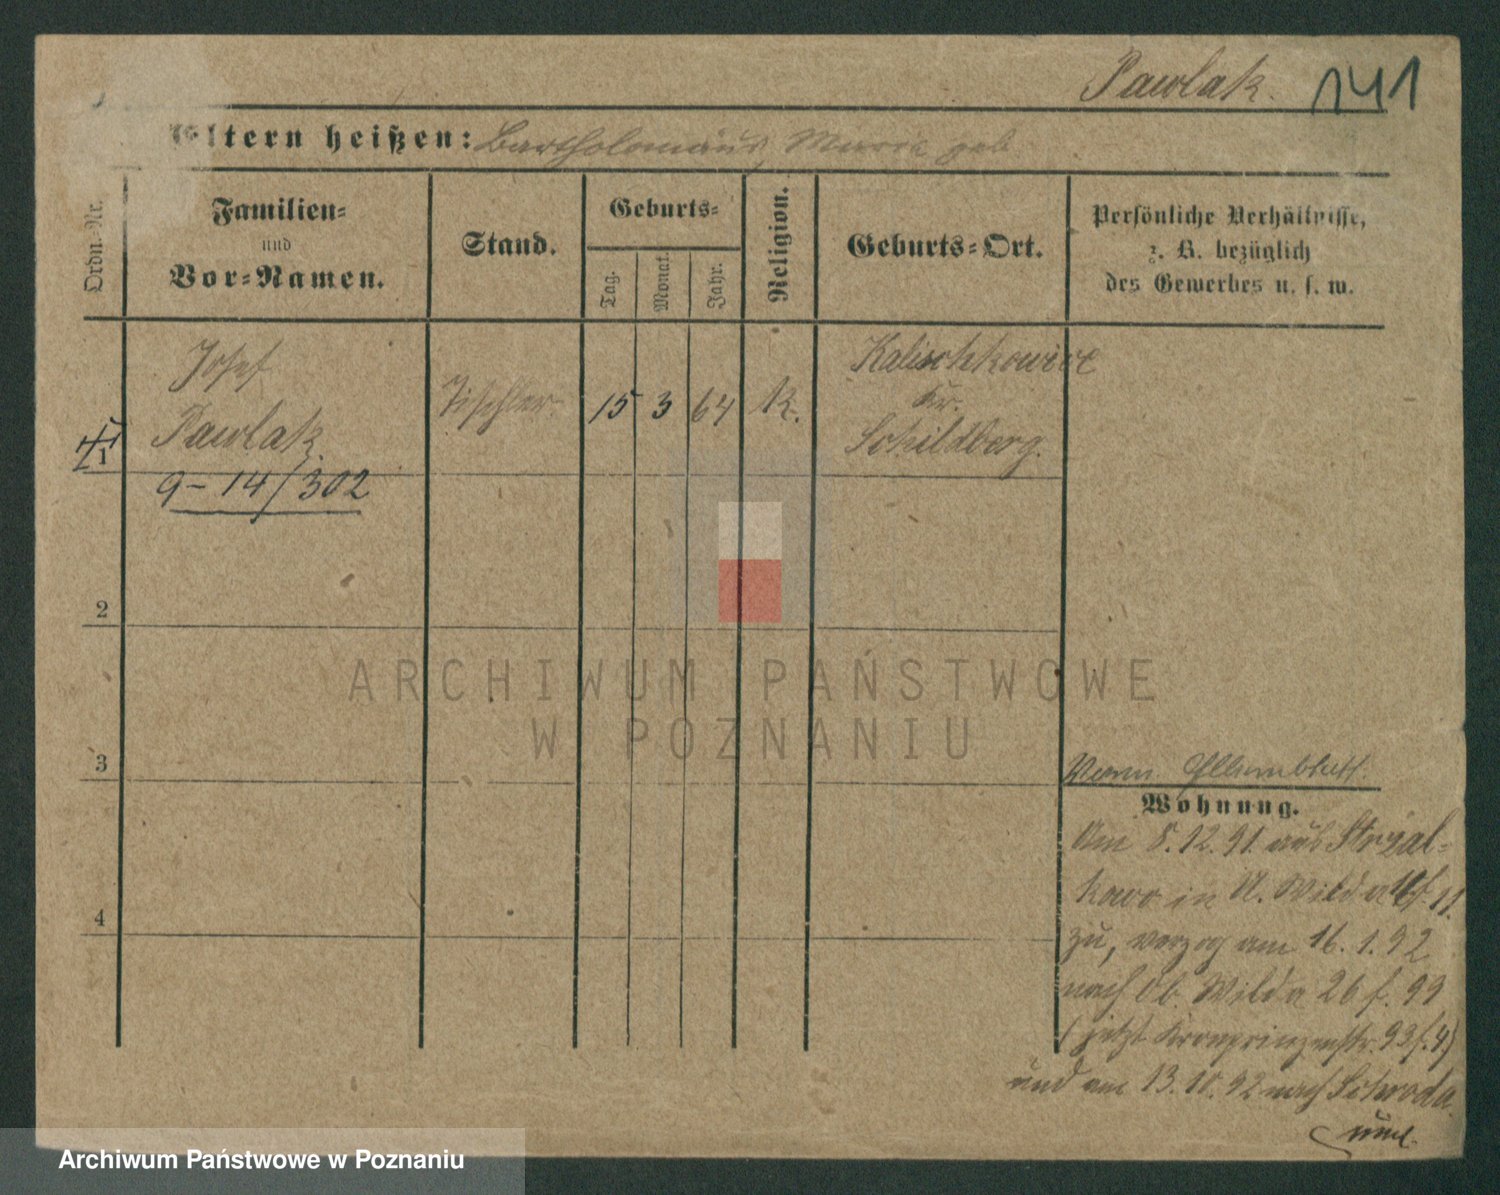 Pawlak. 141
Eltern heißen: Bartholomäus, Maria geb
Ordn.-Nr.
Familien-
und
Vor-Namen.
Stand.
Geburts-
Tag.
Monat.
Jahr.
Religion.
Geburts-Ort.
Persönliche Verhältnisse,
z. B. bezüglich
des Gewerbes u. s. w.
1
Josef
Pawlak.
Tischler
15 3 64
K.
Kalischkowice
Kr.
Schildberg.
9-14/302
2
3
4
Wohnung.
Am 8.12.91. aus Strzal-
kowo in U. Wilda 11.
zu, verzog am 16.1.92
nach Ob. Wilda 26 f. 99
(jetzt Kronprinzenstr. 93 f. 4)
und am 13.10.92 nach Schroda
ARCHIWUM PAŃSTWOWE
W POZNANIU
Archiwum Państwowe w Poznaniu